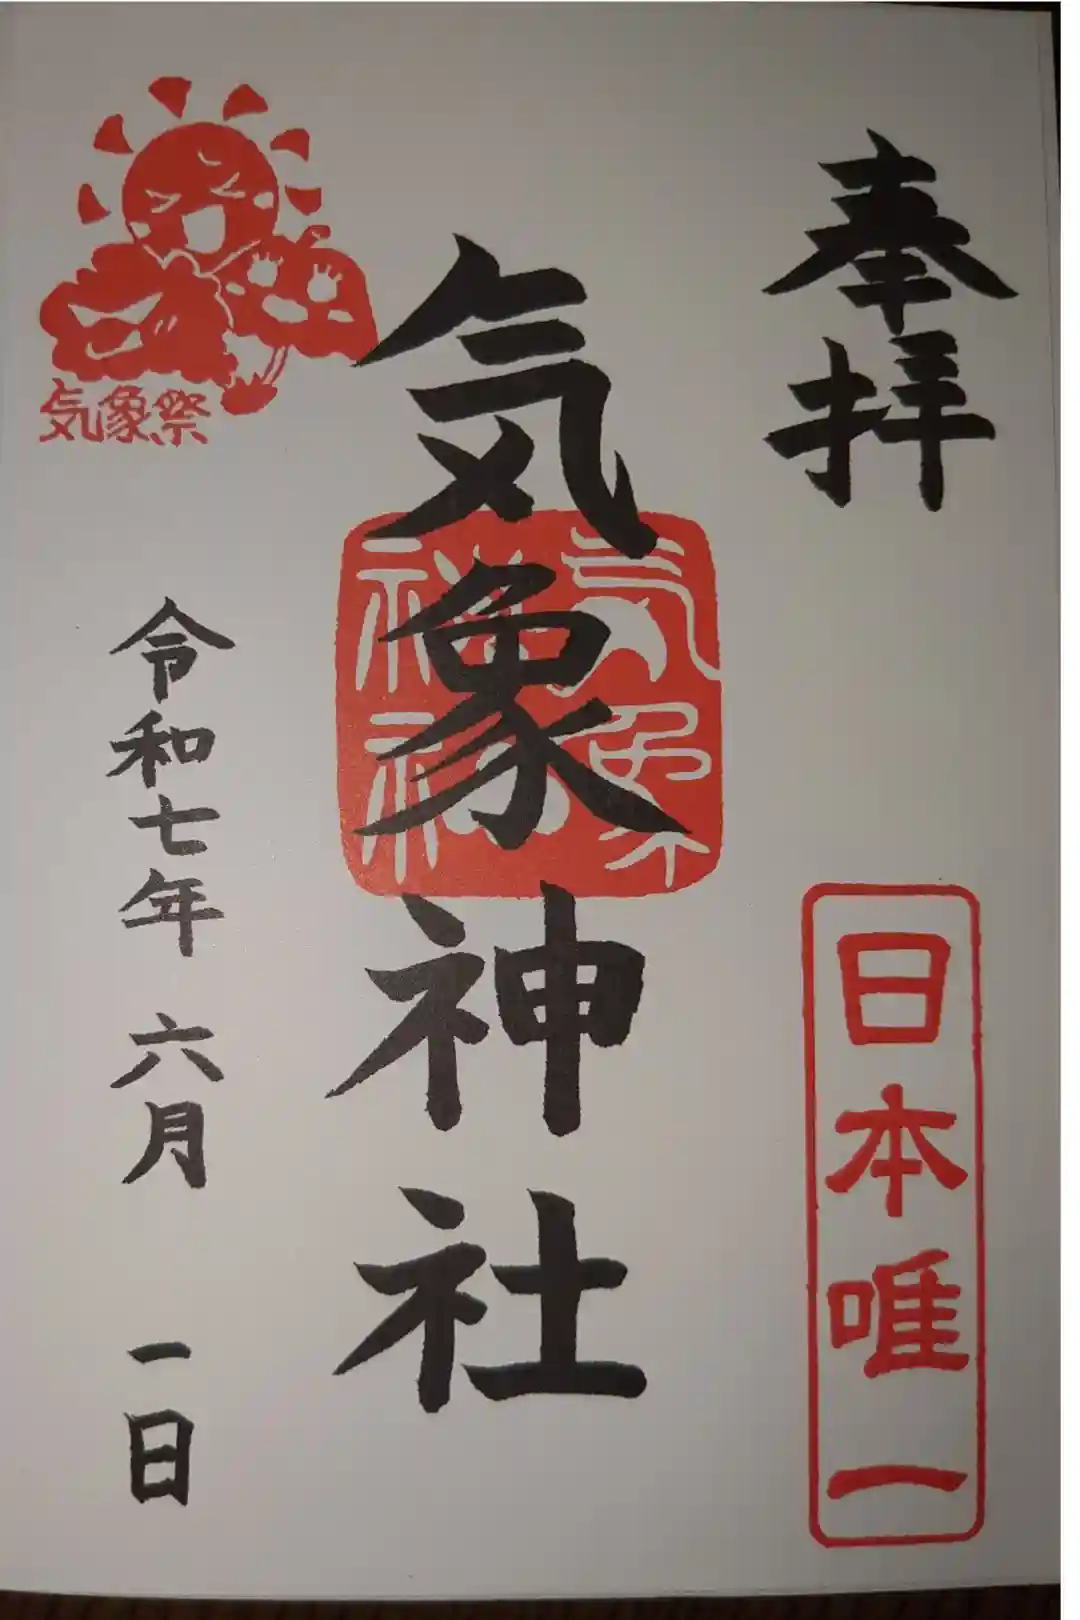 奉拝
日本唯一
気象神社
気象
神社
気象祭
令和七年 六月 一日